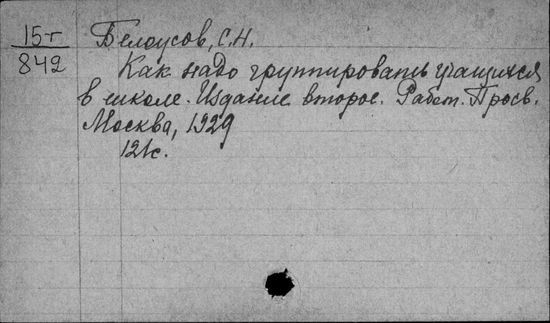 15-г
842
Белоусов, С.Н.
Как надо группировать учащихся
в школе. Издание второе. Работ. Просв.
Москва, 1929
121с.